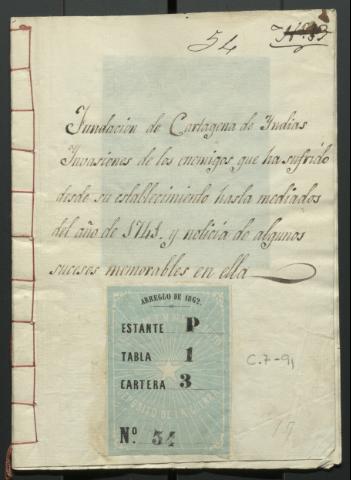 54
Nº 33
Fundacion de Cartagena de Indias
Invasiones de los enemigos que ha sufrido
desde su establecimiento hasta mediados
del año de 1741. y noticia de algunos
sucesos memorables en ella
ARREGLO DE 1862.
ESTANTE P
TABLA 1
CARTERA 3
DEPOSITO DE LA GUERRA
Nº. 54
C.7-9
17